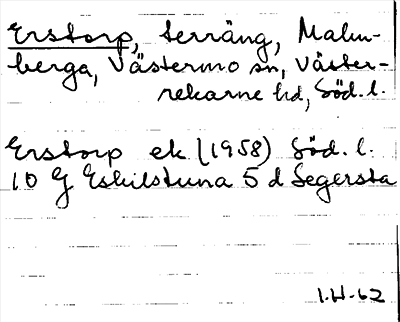 Erstorp, terräng, Malm-
berga, Västermo sn, Väster-
rekarne hd, Söd. l.
Erstorp ek (1958) Söd. l.
10 G Eskilstuna 5 d Segersta
I.H-62